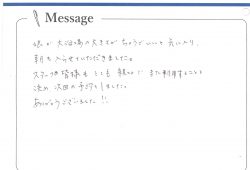 Message
娘が大浴場の大きさがちょうどいいと気に入り、
朝も入らせていただきました。
スタッフの皆様もとても親切で、また利用することを
決め、次回の予定としました。
ありがとうございました!!